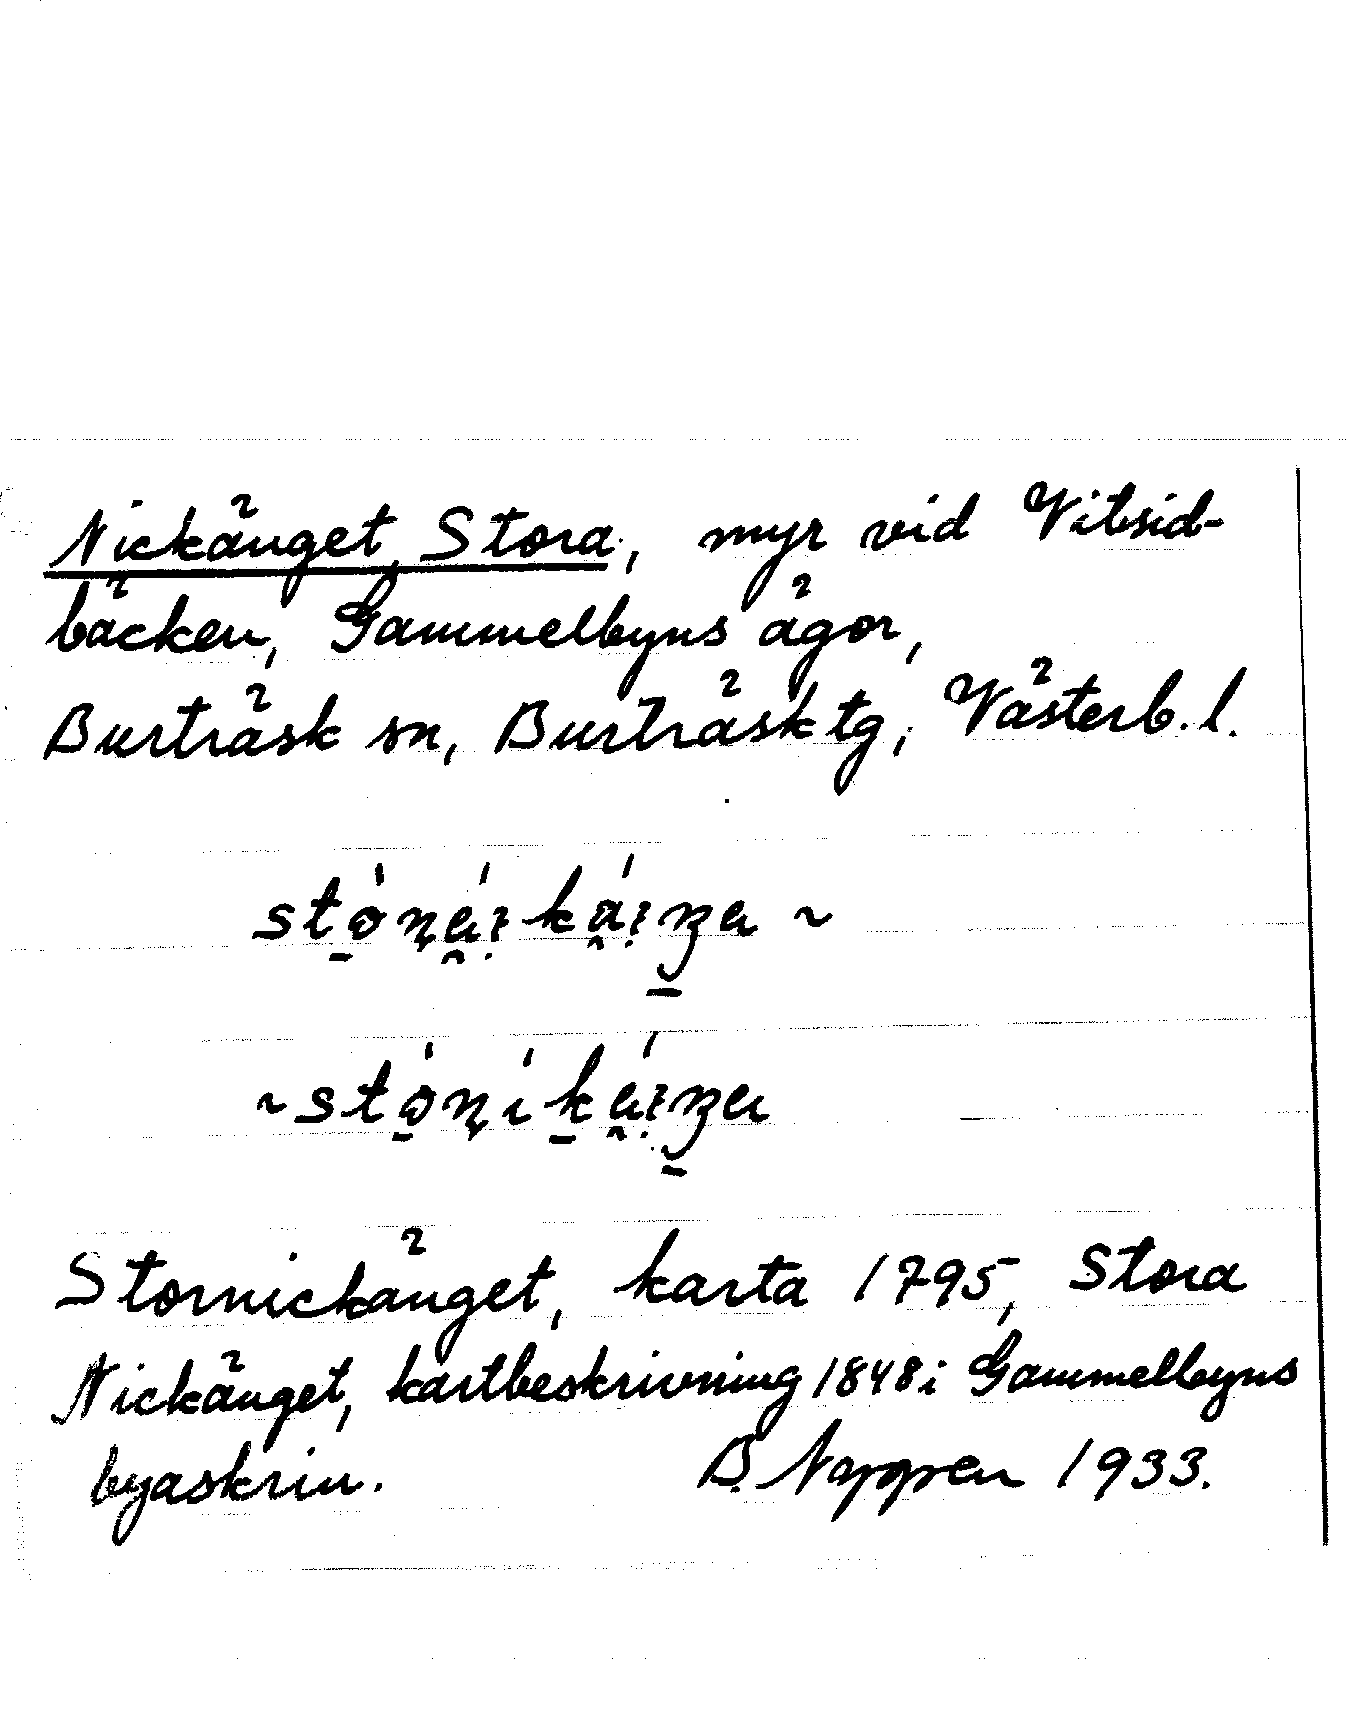 Nickänget, Stora, myr vid Vitsid-
bäcken, Gammelbyns ägor,
Burträsk sn, Burträsk tg, Västerb. l.
Stornickänget, karta 1795, Stora
Nickänget, kartbeskrivning 1848 i Gammelbyns
byaskrin. B. 1933.